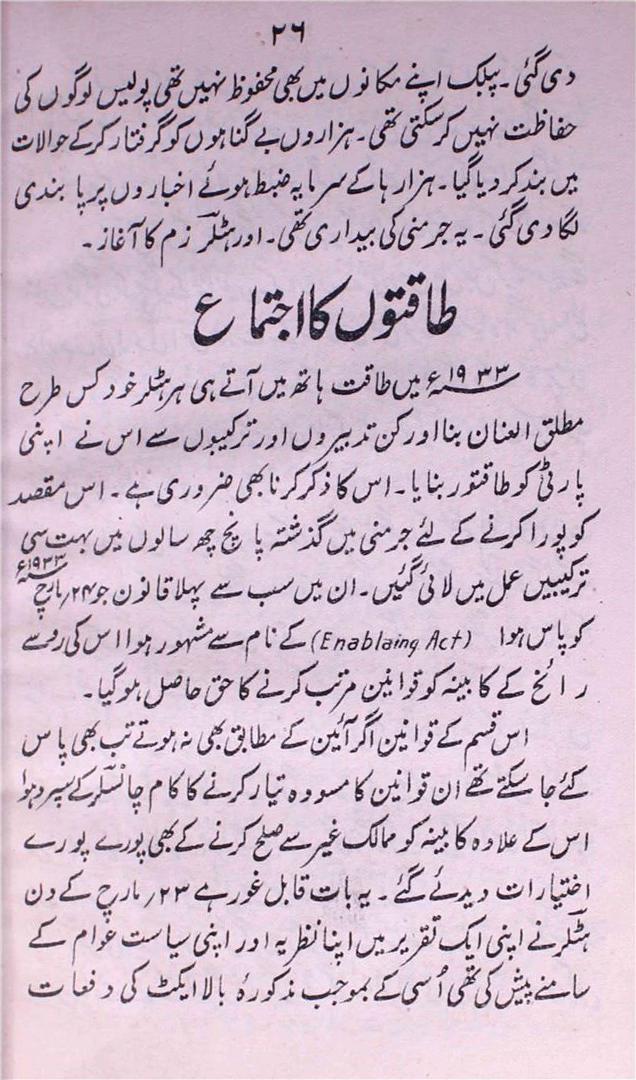 ۲۶
دی گئی۔ پبلک اپنے مکانوں میں بھی محفوظ نہیں تھی پولیس لوگوں کی
حفاظت نہیں کرسکتی تھی۔ ہزاروں بے گناہوں کو گرفتار کرکے حوالات
میں بند کر دیا گیا۔ ہزارہا کے سرمایہ ضبط ہوئے اخباروں پر پابندی
لگا دی گئی۔ یہ جرمنی کی بیداری تھی۔ اور ہٹلر زم کا آغاز۔
طاقتوں کا اجتماع
۱۹۳۳ء میں طاقت ہاتھ میں آتے ہی ہر ہٹلر خود کس طرح
مطلق العنان بنا اور کن تدبیروں اور ترکیبوں سے اس نے اپنی
پارٹی کو طاقتور بنایا۔ اس کا ذکر کرنا بھی ضروری ہے۔ اس مقصد
کو پورا کرنے کے لئے جرمنی میں گذشتہ پانچ چھ سالوں میں بہت سی
ترکیبیں عمل میں لائی گئیں۔ ان میں سب سے پہلا قانون جو ۲۴؍مارچ ۱۹۳۳ء
کو پاس ہوا (Enablaing Act) کے نام سے مشہور ہوا اس کی رو سے
رائخ کے کابینہ کو قوانین مرتب کرنے کا حق حاصل ہوگیا۔
اس قسم کے قوانین اگر آئین کے مطابق بھی نہ ہوتے تب بھی پاس
کئے جا سکتے تھے ان قوانین کا مسودہ تیار کرنے کا کام چانسلر کے سپرد ہوا
اس کے علاوہ کابینہ کو ممالک غیر سے صلح کرنے کے بھی پورے پورے
اختیارات دیدئے گئے۔ یہ بات قابل غور ہے ۲۳؍ مارچ کے دن
ہٹلر نے اپنی ایک تقریر میں اپنا نظریہ اور اپنی سیاست عوام کے
سامنے پیش کی تھی اُسی کے بموجب مذکورۂ بالا ایکٹ کی دفعات